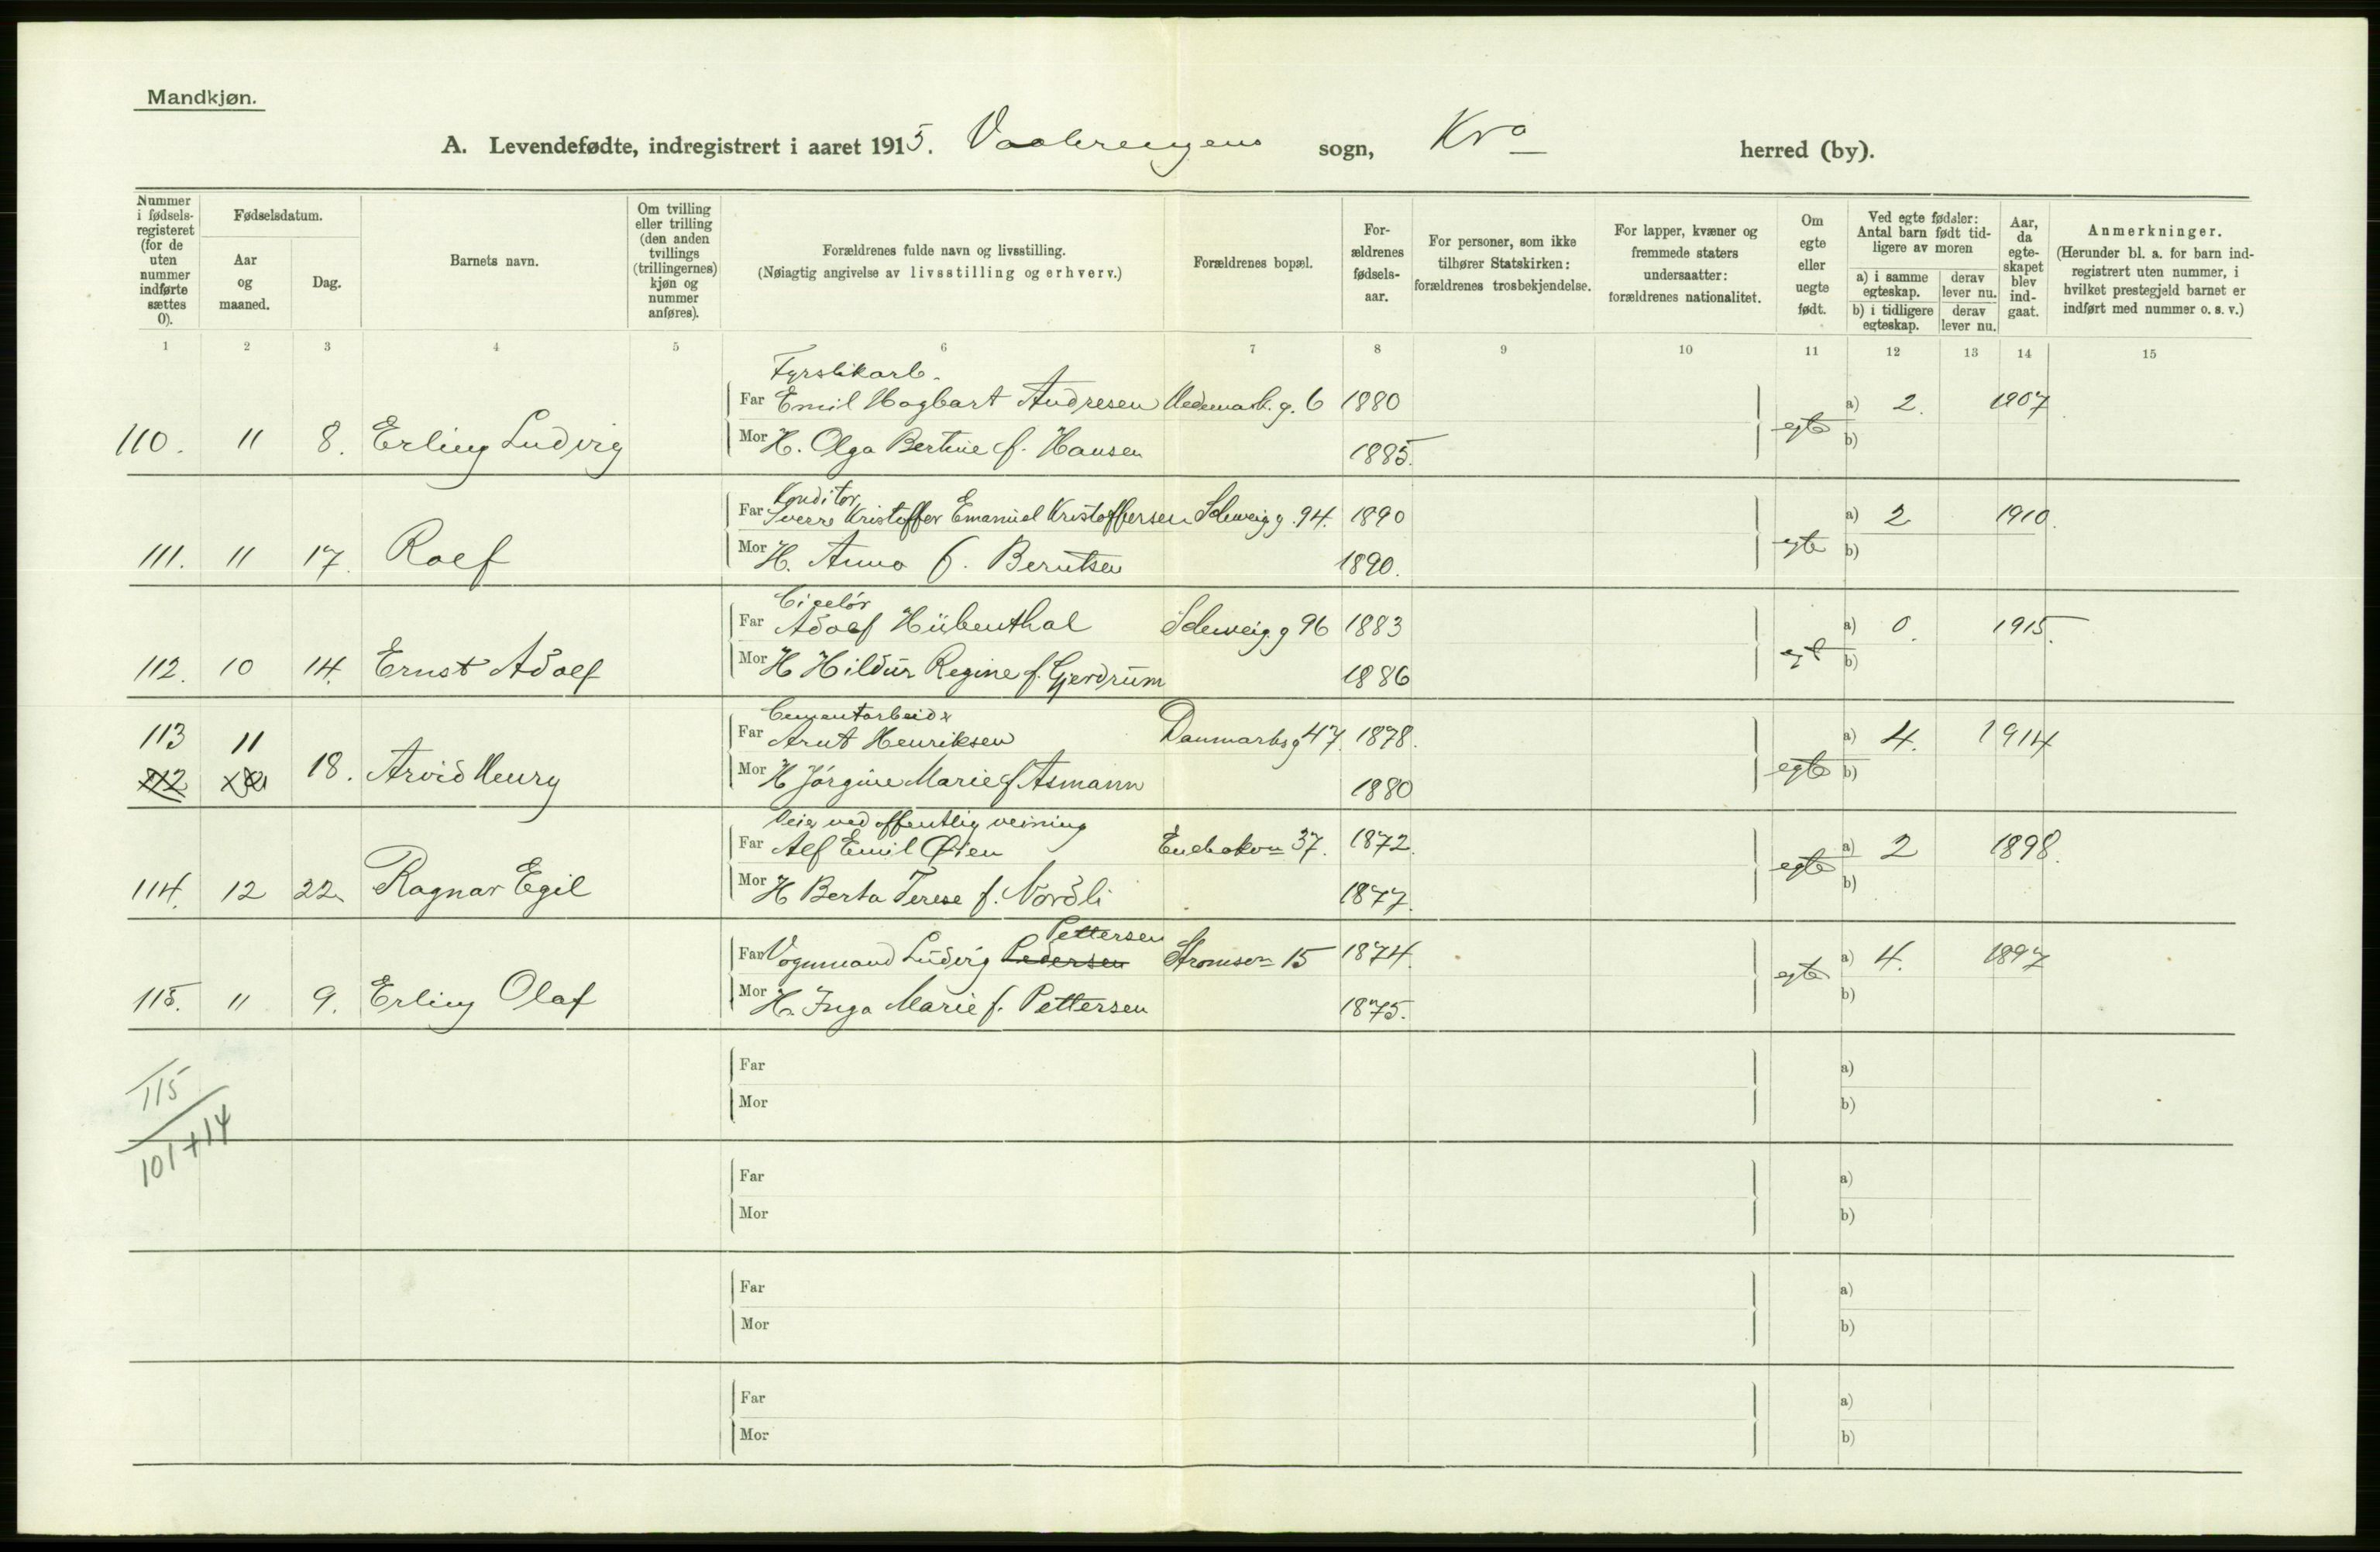 Mandkjøn.
A. Levendefødte, indregistrert i aaret 1915. Vaalerengens sogn, Kra herred (by).
Nummer i fødsels-registeret (for de uten nummer indførte sættes 0).
Fødselsdatum.
Aar og maaned.
Dag.
Barnets navn.
Om tvilling eller trilling (den anden tvillings (trillingernes) kjøn og nummer anføres).
Forældrenes fulde navn og livsstilling.
(Nøiagtig angivelse av livsstilling og erhverv.)
Forældrenes bopæl.
For-ældrenes fødsels-aar.
For personer, som ikke tilhører Statskirken: forældrenes trosbekjendelse.
For lapper, kvæner og fremmede staters undersaatter: forældrenes nationalitet.
Om egte eller uegte født.
Ved egte fødsler: Antal barn født tid-ligere av moren
a) i samme egteskap. derav lever nu.
b) i tidligere egteskap. derav lever nu.
Aar, da egte-skapet blev ind-gaat.
Anmerkninger.
(Herunder bl. a. for barn ind-registrert uten nummer, i hvilket prestegjeld barnet er indført med nummer o. s. v.)
1 2 3 4 5 6 7 8 9 10 11 12 13 14 15
Fyrstikarb.
Far Emil Hagbart Andresen Hedemark.g. 6 1880 a) 2. 1907
110. 11 8. Erling Ludvig Mor H. Olga Bertine f. Hansen 1885. egte b)
Konditor
Far Sverre Kristoffer Emanuel Kristoffersen Schweigg. 94. 1890 a) 2 1910.
111. 11 17. Rolf Mor H. Anna f. Berntsen 1890. egte b)
Ciselør
Far Adolf Hübenthal Schweigg. 96 1883 a) 0. 1915.
112. 10 14. Ernst Adolf Mor H Hildur Regine f. Gjerdrum 1886 egt b)
Cementarbeider
113 11 Far Arnt Henriksen Danmarksg 47. 1878. a) 4. 1914
112 18. Arvid Henry Mor H Jørgine Marie f Asmann 1880 egte b)
Veier ved offentlig veining
Far Alf Emil Øien Enebakvn 37. 1872. a) 2 1898.
114. 12 22. Ragnar Egil Mor H Berta Terese f. Nordli 1877. egte b)
Pettersen
Far Vognmand Ludvig Pedersen Stromsvn 15 1874. a) 4. 1897
115. 11 9. Erling Olaf Mor H. Inga Marie f. Pettersen 1875. egte b)
Far a)
115
Mor b)
101+14
Far a)
Mor b)
Far a)
Mor b)
Far a)
Mor b)